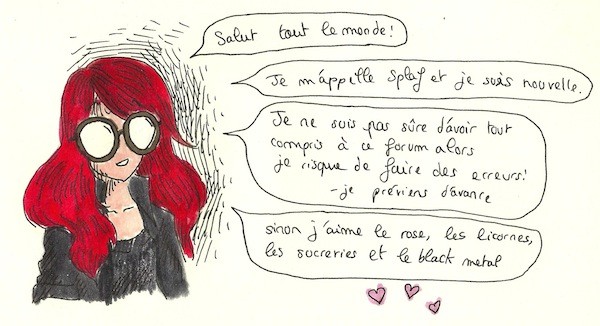 Salut tout le monde!
Je m'appelle Splaf et je suis nouvelle.
Je ne suis pas sûre d'avoir tout
compris à ce forum alors
je risque de faire des erreurs!
-je préviens d'avance
sinon j'aime le rose, les licornes,
les sucreries et le black metal